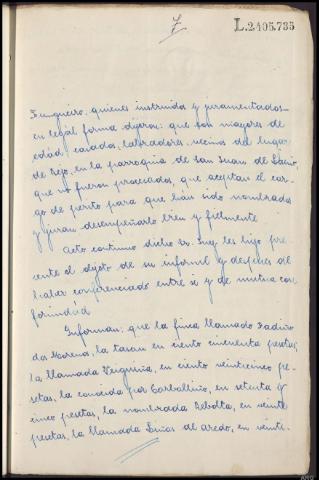 7
L.2405.735
Sunqueiro, quienes instruidos y juramentados
en legal forma dijeron: que son mayores de
edad, casados, labradores, vecinos del lugar
de Rejo, en la parroquia de San Juan de
que no fueron procesados, que aceptan el car-
go de perito para que han sido nombrados
y juran desempeñarlo bien y fielmente
Acto continuo dicho Sr. Juez les hizo pre-
sente el objeto de su informe y despues de
haber conferenciado entre si y de mutua con
formidad
Informan: que la finca llamado
dos Morenos, la tasan en ciento cincuenta pesetas,
la llamada en ciento veinticinco pe-
setas, la conocida por Carballiño, en setenta y
cinco pesetas, la nombrada Rebolta, en veinte
pesetas, la llamada de Aredo, en veinti-